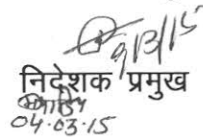 9/3/15
निदेशक प्रमुख
04.03.15